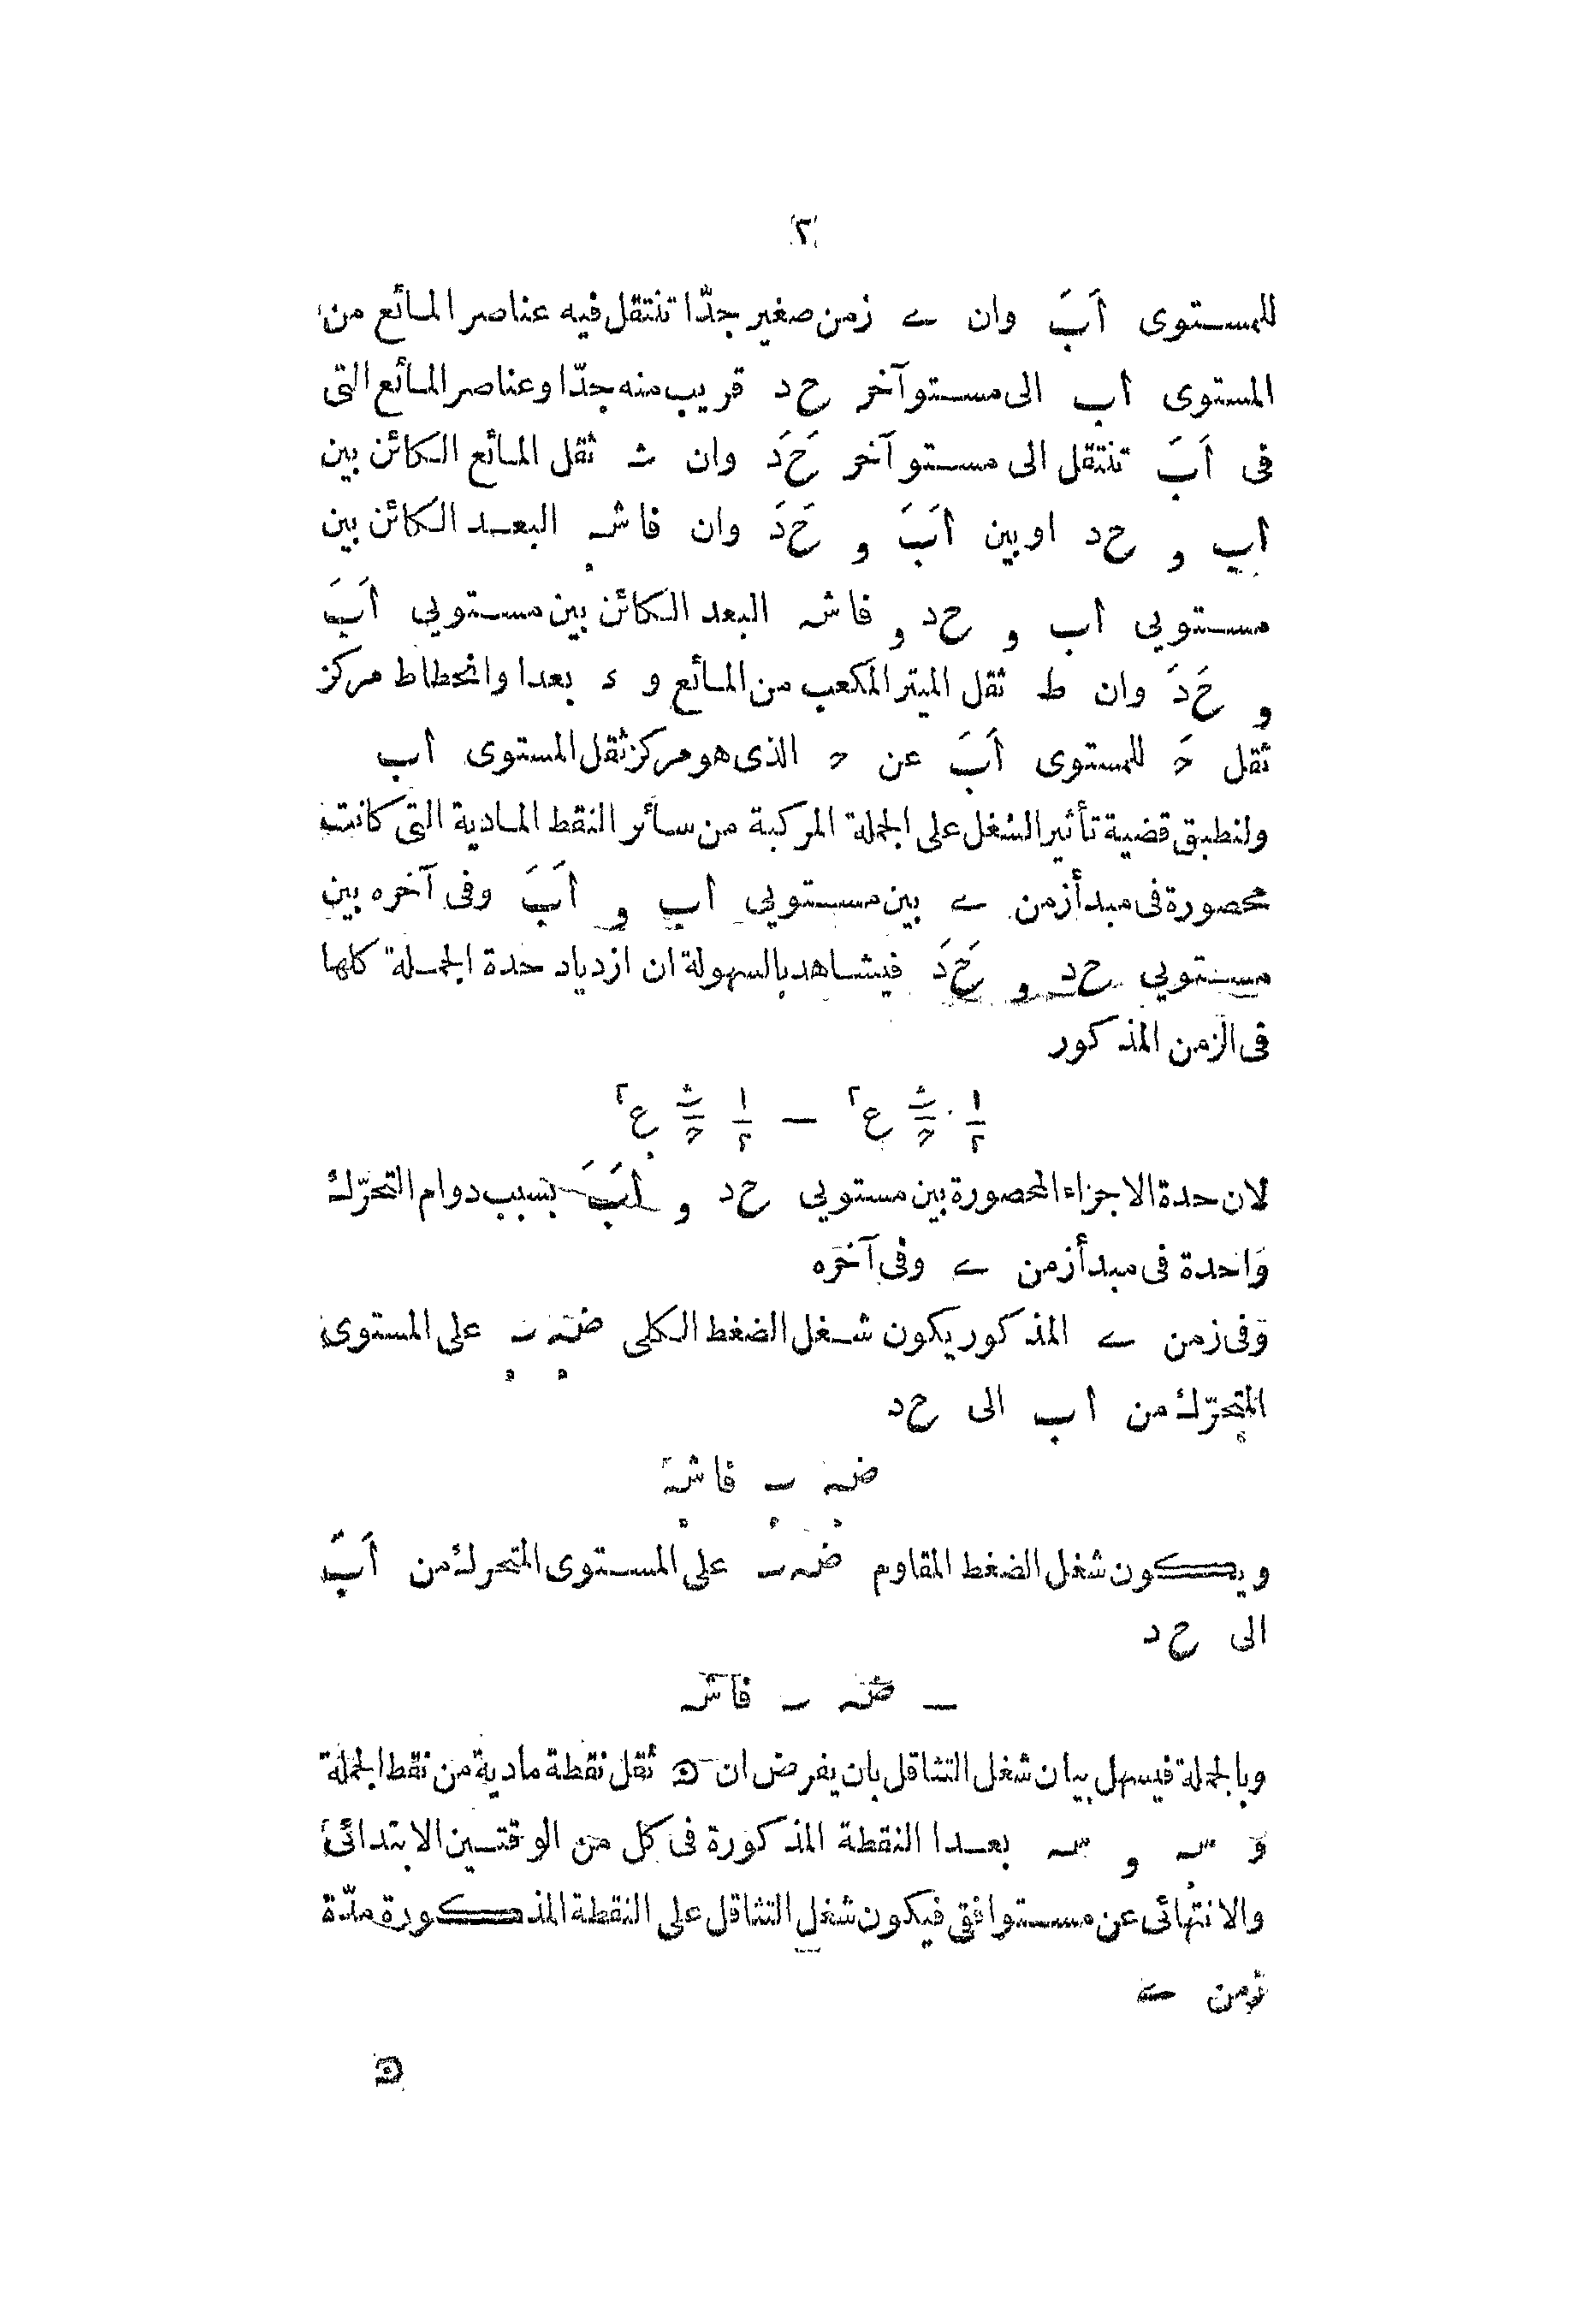 ٢
للمستوى اَبَ وان ے زمن صغير جدّا تنتقل فيه عناصر المائع من
المستوى اب الى مستو آخر حد قريب منه جدّا وعناصر المائع التى
فى اَبَ تنتقل الى مستو آخر حَدَ وان ث ثقل المائع الكائن بين
اب و حد او بين اَبَ و حَدَ وان فاشہ البعد الكائن بين
مستويي اب و حد و فاشہ البعد الكائن بين مستويي اَبَ
و حَدَ وان ط ثقل الميتر المكعب من المائع و ء بعدا وانحطاط مركز
ثقل حَ للمستوى اَبَ عن ح الذى هو مركز ثقل المستوى اب
ولنطبق قضية تأثير الشغل على الجملة المركبة من سائر النقط المادية التى كانت
محصورة فى مبدأ زمن ے بين مستويي اب و اَبَ وفى آخره بين
مستويي حد و حَدَ فيشاهد بالسهولة ان ازدياد حدة الجملة كلها
فى الزمن المذكور
١/٢ ث/ح ع٢ — ١/٢ ث/ح ع٢
لان حدة الاجزاء المحصورة بين مستويي حد و اَبَ بسبب دوام التحرّك
واحدة فى مبدأ زمن ے وفى آخره
وفى زمن ے المذكور يكون شغل الضغط الكلى ضہ ب على المستوى
المتحرّك من اب الى حد
ضہ ب فاشہ
ويكون شغل الضغط المقاوم ضہ ب على المستوى المتحرك من اَبَ
الى حد
— ضہ ب فاشہ
وبالجملة فيسهل بيان شغل التثاقل بان يفرض ان ق ثقل نقطة مادية من نقط الجملة
و سہ و سہ بعدا النقطة المذكورة فى كل من الوقتين الابتدائى
والانتهائى عن مستو افقى فيكون شغل التثاقل على النقطة المذكورة مدّة
زمن ے
ق